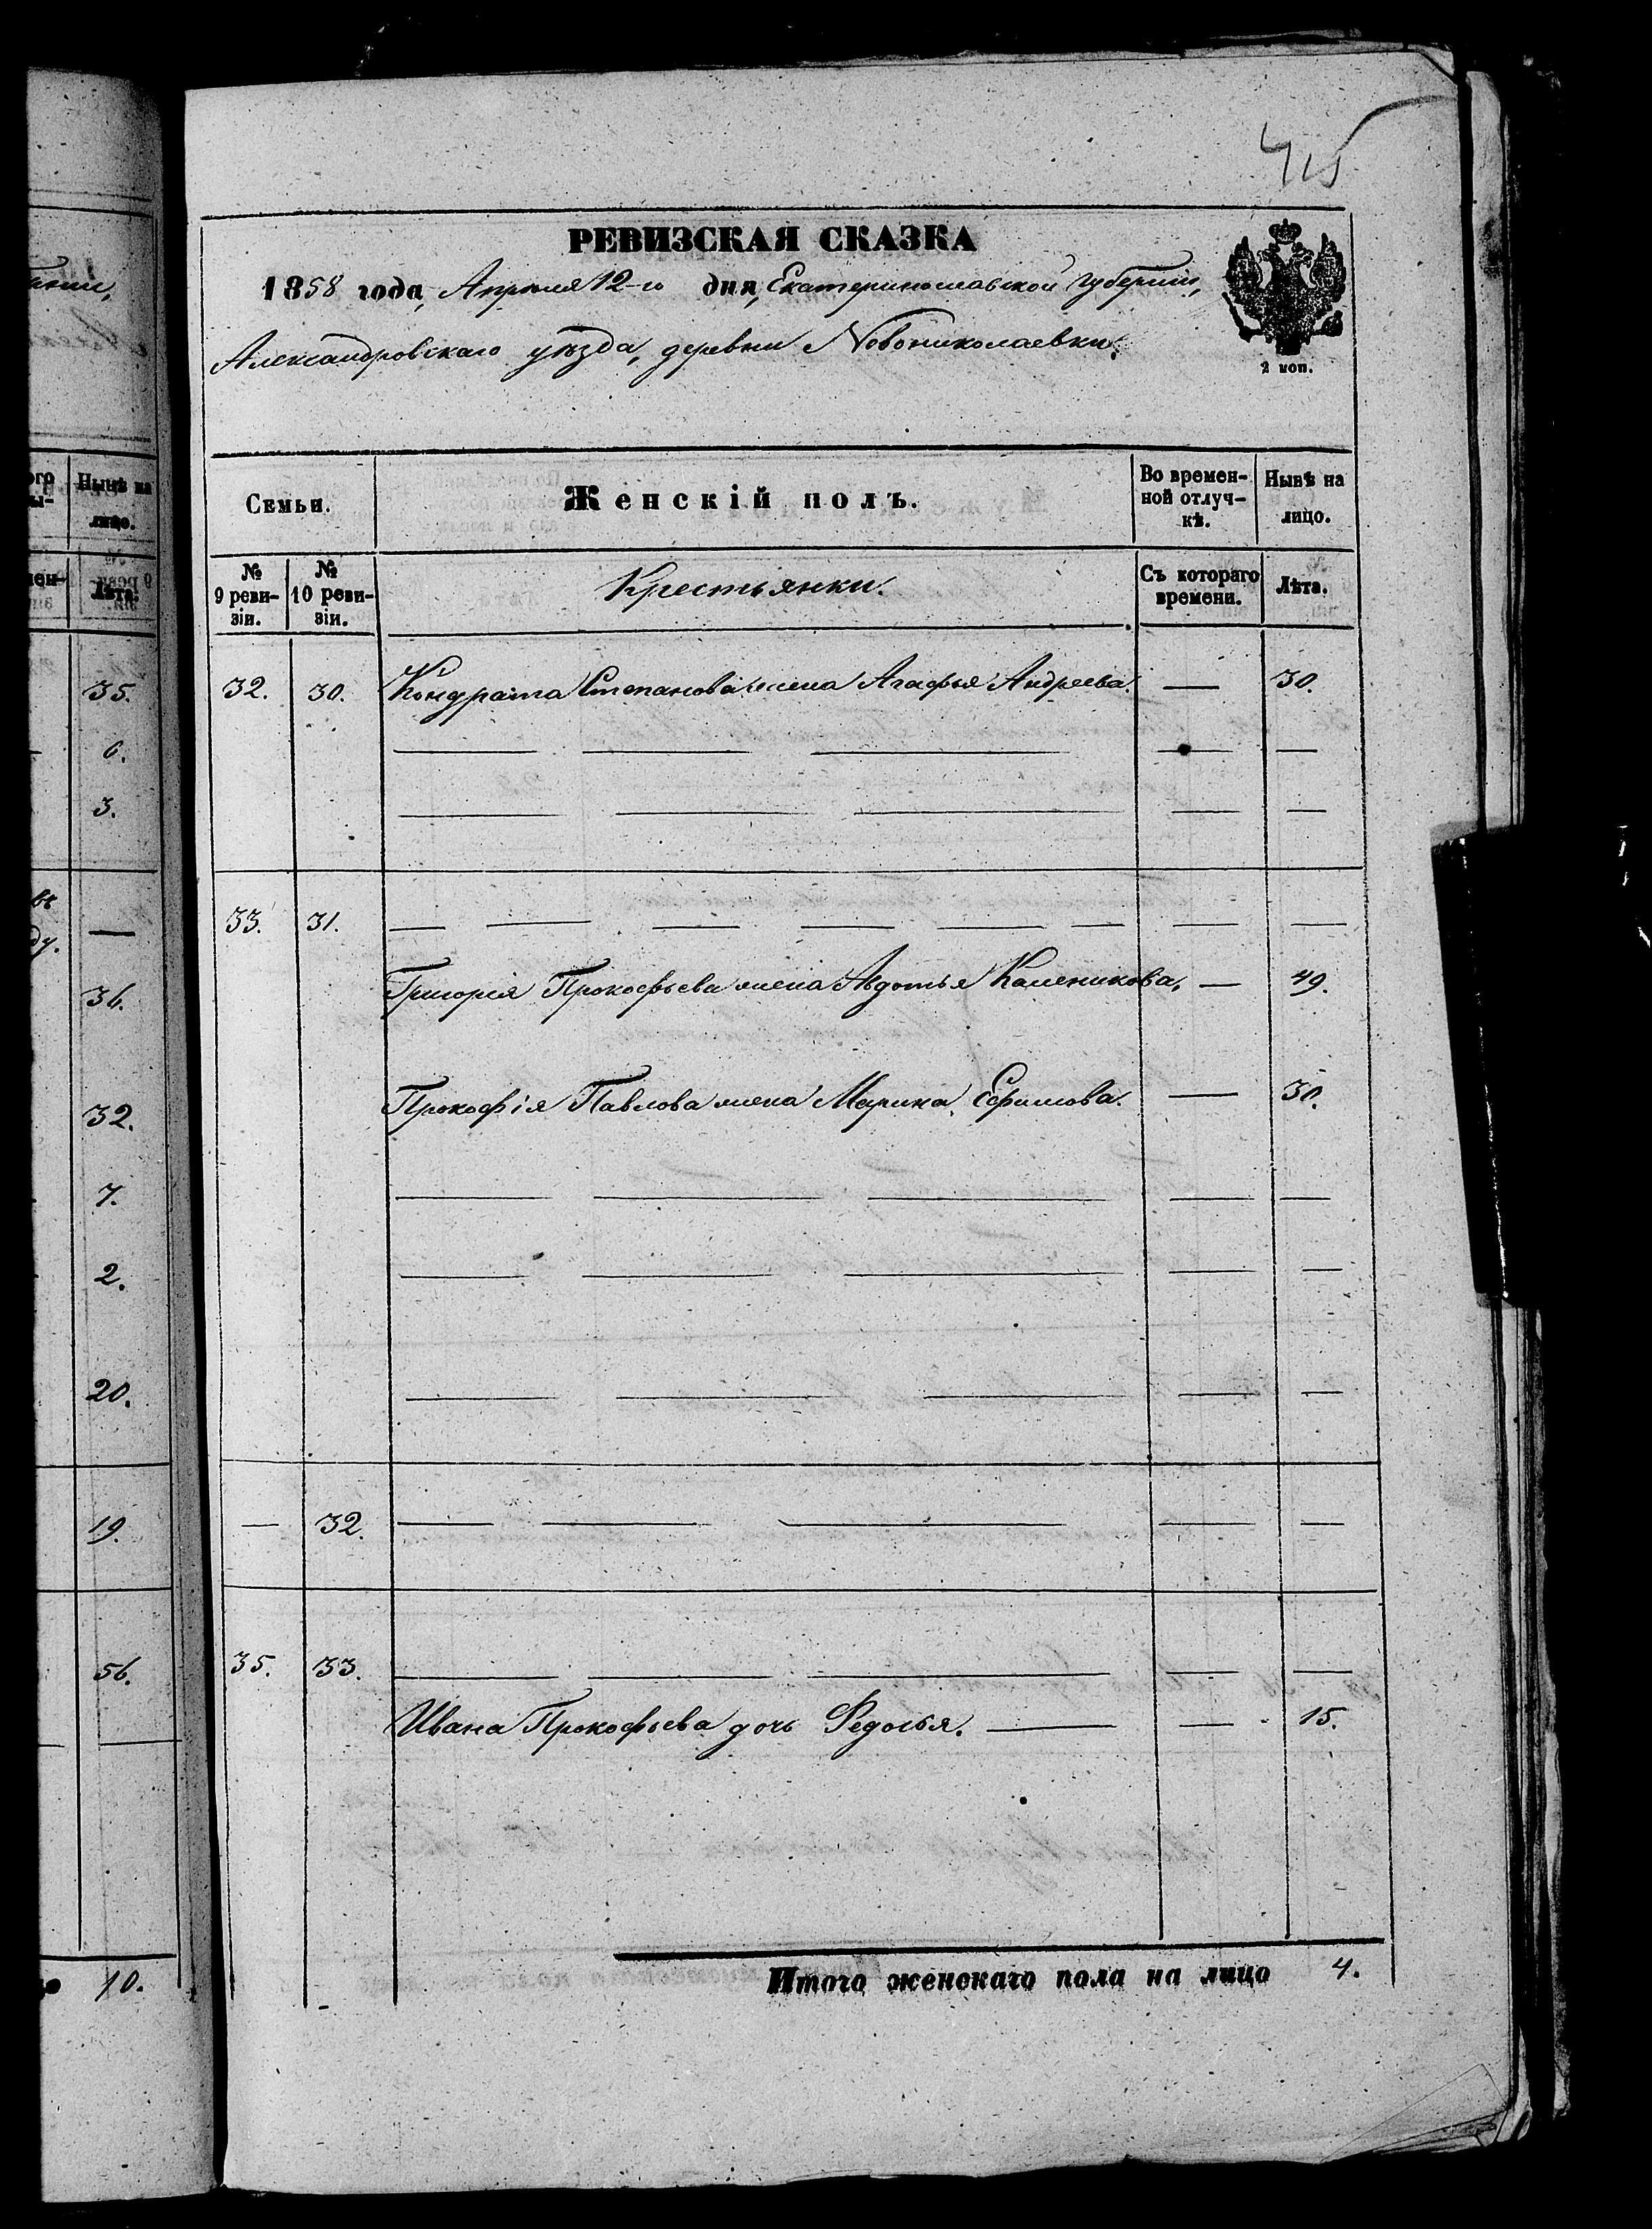 415
РЕВИЗСКАЯ СКАЗКА
1858 года, Апрѣля 12-го дня, Екатеринославской губерніи,
Александровскаго уѣзда, деревни Новониколаевки.
2 коп.
Семьи. Женскій полъ. Во времен- Нынѣ на
ной отлуч- лицо.
кѣ.
№ № Крестьянки. Съ котораго Лѣта.
9 реви- 10 реви- времени.
зіи. зіи.
32. 30. Кондрата Степанова жена Агафья Андреева. — 30.
33. 31. — — — — — — — —
Григорія Прокофьева жена Авдотья Каленикова, — 49.
Прокофія Павлова жена Марина Ефимова. — 30.
— 32. — — — — —
35. 33. — — — — —
Ивана Прокофьева дочь Федосья. — — 15.
Итого женскаго пола на лицо 4.
Нынѣ на
лицо.
Лѣта.
35.
6.
3.
—
36.
32.
7.
2.
20.
19.
56.
10.